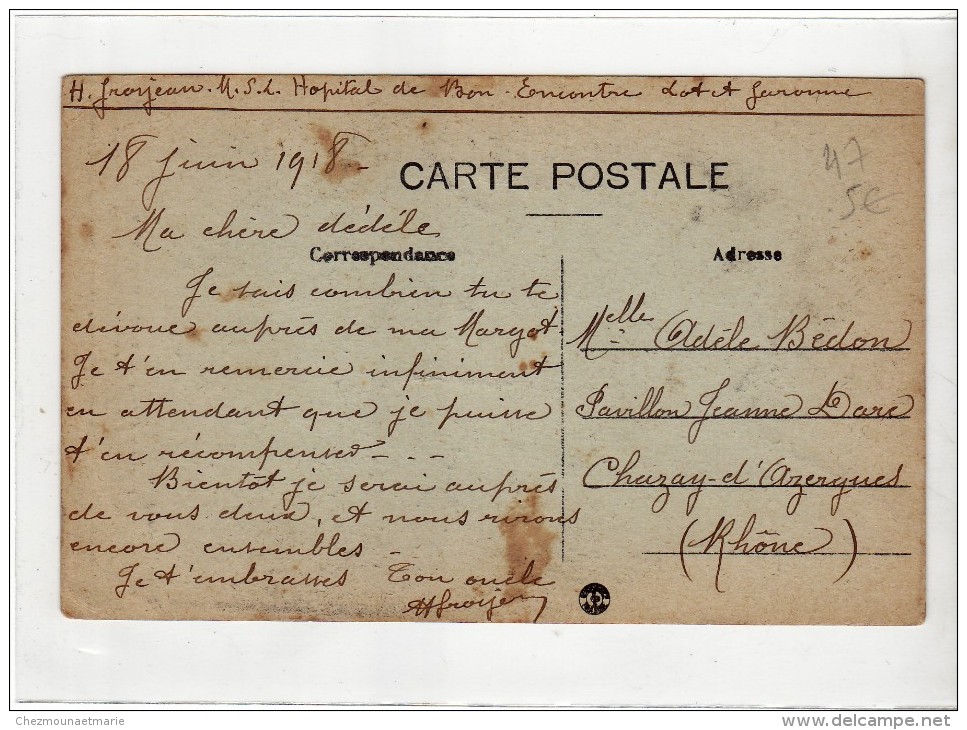 H. Grosjean. M.S.L. Hopital de Bon-Encontre Lot et Garonne
18 juin 1918 -
CARTE POSTALE
47
5€
Ma chère dédéle
Correspondance
Je sais combien tu te
dévoue auprés de ma Margot
Je t'en remercie infiniment
en attendant que je puisse
t'en récompenser - - -
Bientot je serai auprés
de vous deux, et nous rirons
encore ensembles -
Je t'embrasses Ton oncle
HGrosjean
Adresse
Melle Adéle Bédon
Pavillon Jeanne Darc
Chazay-d'Azergues
(Rhône)
Chezmounaetmarie
www.delcampe.net